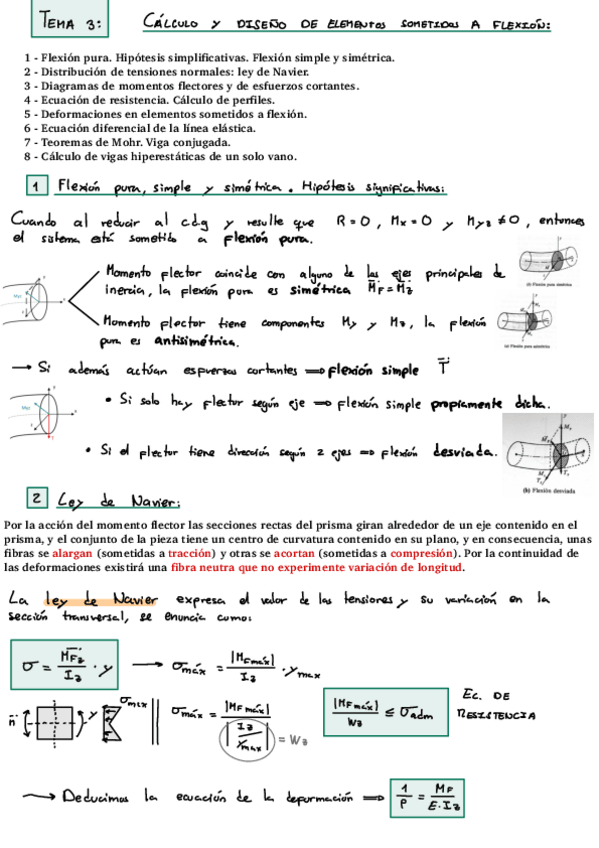 TEMA 3: CÁLCULO Y DISEÑO DE ELEMENTOS SOMETIDOS A FLEXIÓN:
1 - Flexión pura. Hipótesis simplificativas. Flexión simple y simétrica.
2 - Distribución de tensiones normales: ley de Navier.
3 - Diagramas de momentos flectores y de esfuerzos cortantes.
4 - Ecuación de resistencia. Cálculo de perfiles.
5 - Deformaciones en elementos sometidos a flexión.
6 - Ecuación diferencial de la línea elástica.
7 - Teoremas de Mohr. Viga conjugada.
8 - Cálculo de vigas hiperestáticas de un solo vano.
1 Flexión pura, simple y simétrica. Hipótesis significativas:
Cuando al reducir al c.d.g y resulte que R = 0, Mx = 0 y Myz ≠ 0, entonces
el sistema está sometido a flexión pura.
Momento flector coincide con alguno de las ejes principales de
inercia, la flexión pura es simétrica MF = Mz
Momento flector tiene componentes My y Mz, la flexión
pura es Antisimétrica.
→ Si además actúan esfuerzos cortantes ⇒ flexión simple T
• Si solo hay flector según eje ⇒ flexión simple propiamente dicha.
• Si el flector tiene dirección según 2 ejes ⇒ flexión desviada.
(b) Flexión desviada
2 Ley de Navier:
Por la acción del momento flector las secciones rectas del prisma giran alrededor de un eje contenido en el
prisma, y el conjunto de la pieza tiene un centro de curvatura contenido en su plano, y en consecuencia, unas
fibras se alargan (sometidas a tracción) y otras se acortan (sometidas a compresión). Por la continuidad de
las deformaciones existirá una fibra neutra que no experimente variación de longitud.
La ley de Navier expresa el valor de las tensiones y su variación en la
sección transversal, se enuncia como:
σ = MFz / Iz · y → σmáx = |MFmáx| / Iz · ymax
n y σmax σmáx = |MFmáx| / |Iz / ymax| = Wz |MFmáx| / Wz ≤ σadm EC. DE
RESISTENCIA
→ Deducimos la ecuación de la deformación ⇒ 1/ρ = MF / E·Iz